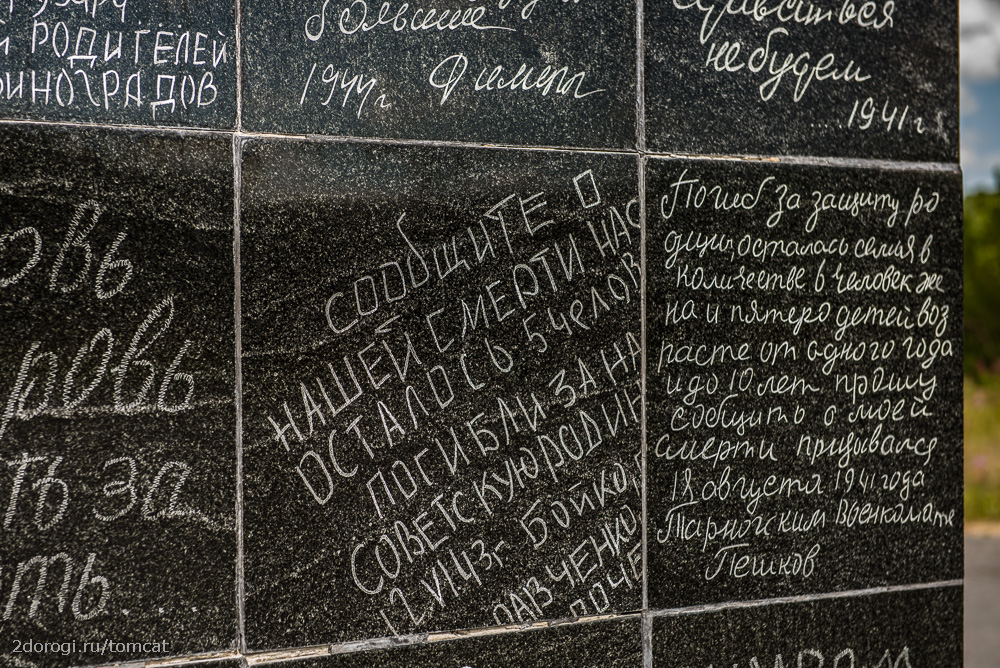 РОДИТЕЛЕЙ
больше
1944 г.
небудем
...1941 г.
овь
ровь
ть за
ть...
СООБЩИТЕ О
НАШЕЙ СМЕРТИ НАС
ОСТАЛОСЬ 5 чело
ПОГИБЛИ ЗА НА
СОВЕТСКУЮ РОДИН
12.VI.43г. БОЙКО,
ЧЕНКО
Погиб за защиту ро
дины, осталась семья в
количестве 6 человек же
на и пятеро детей воз
расте от одного года
и до 10 лет прошу
сообщить о моей
смерти призывался
18 августа 1941 года
Тарногским Военкомате
Пешков
2dorogi.ru/tomcat